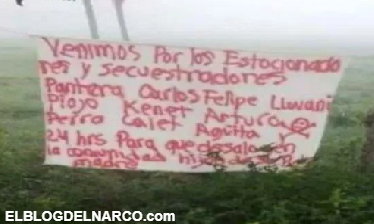 Venimos Por los Estorcionado
res y secuestradores
Pantera Carlos Felipe Liwani
Piojo Kener Arturo
Perra Calet Agitta y
24 hrs Para que desalojen
la comunidad hijos de su Pu
madre
ELBLOGDELNARCO.com